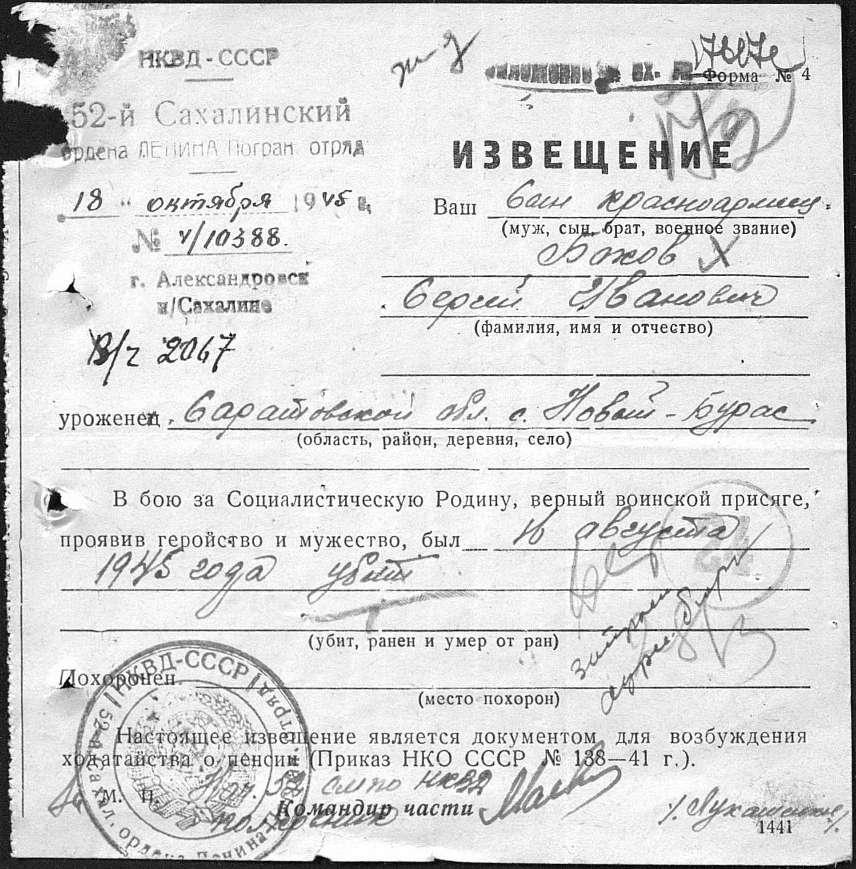 НКВД-СССР
52-й Сахалинский
ордена ЛЕНИНА Погран. отряд
18 " октября 1945 г.
№ 4/10388.
г. Александровск
н/Сахалине
В/ч 2067
Форма № 4
ИЗВЕЩЕНИЕ
Ваш Сын красноармеец
(муж, сын, брат, военное звание)
Бахов
Сергей Иванович
(фамилия, имя и отчество)
уроженец Саратовской обл. с. Новый-Бурас
(область, район, деревня, село)
В бою за Социалистическую Родину, верный воинской присяге,
проявив геройство и мужество, был 16 августа
1945 года убит
(убит, ранен и умер от ран)
Похоронен
(место похорон)
Настоящее извещение является документом для возбуждения
ходатайства о пенсии (Приказ НКО СССР № 138—41 г.).
Нач. 52 НКВД
М. П. Командир части
полковник
1441
НКВД-СССР
52-й Сахал. ордена Ленина
42